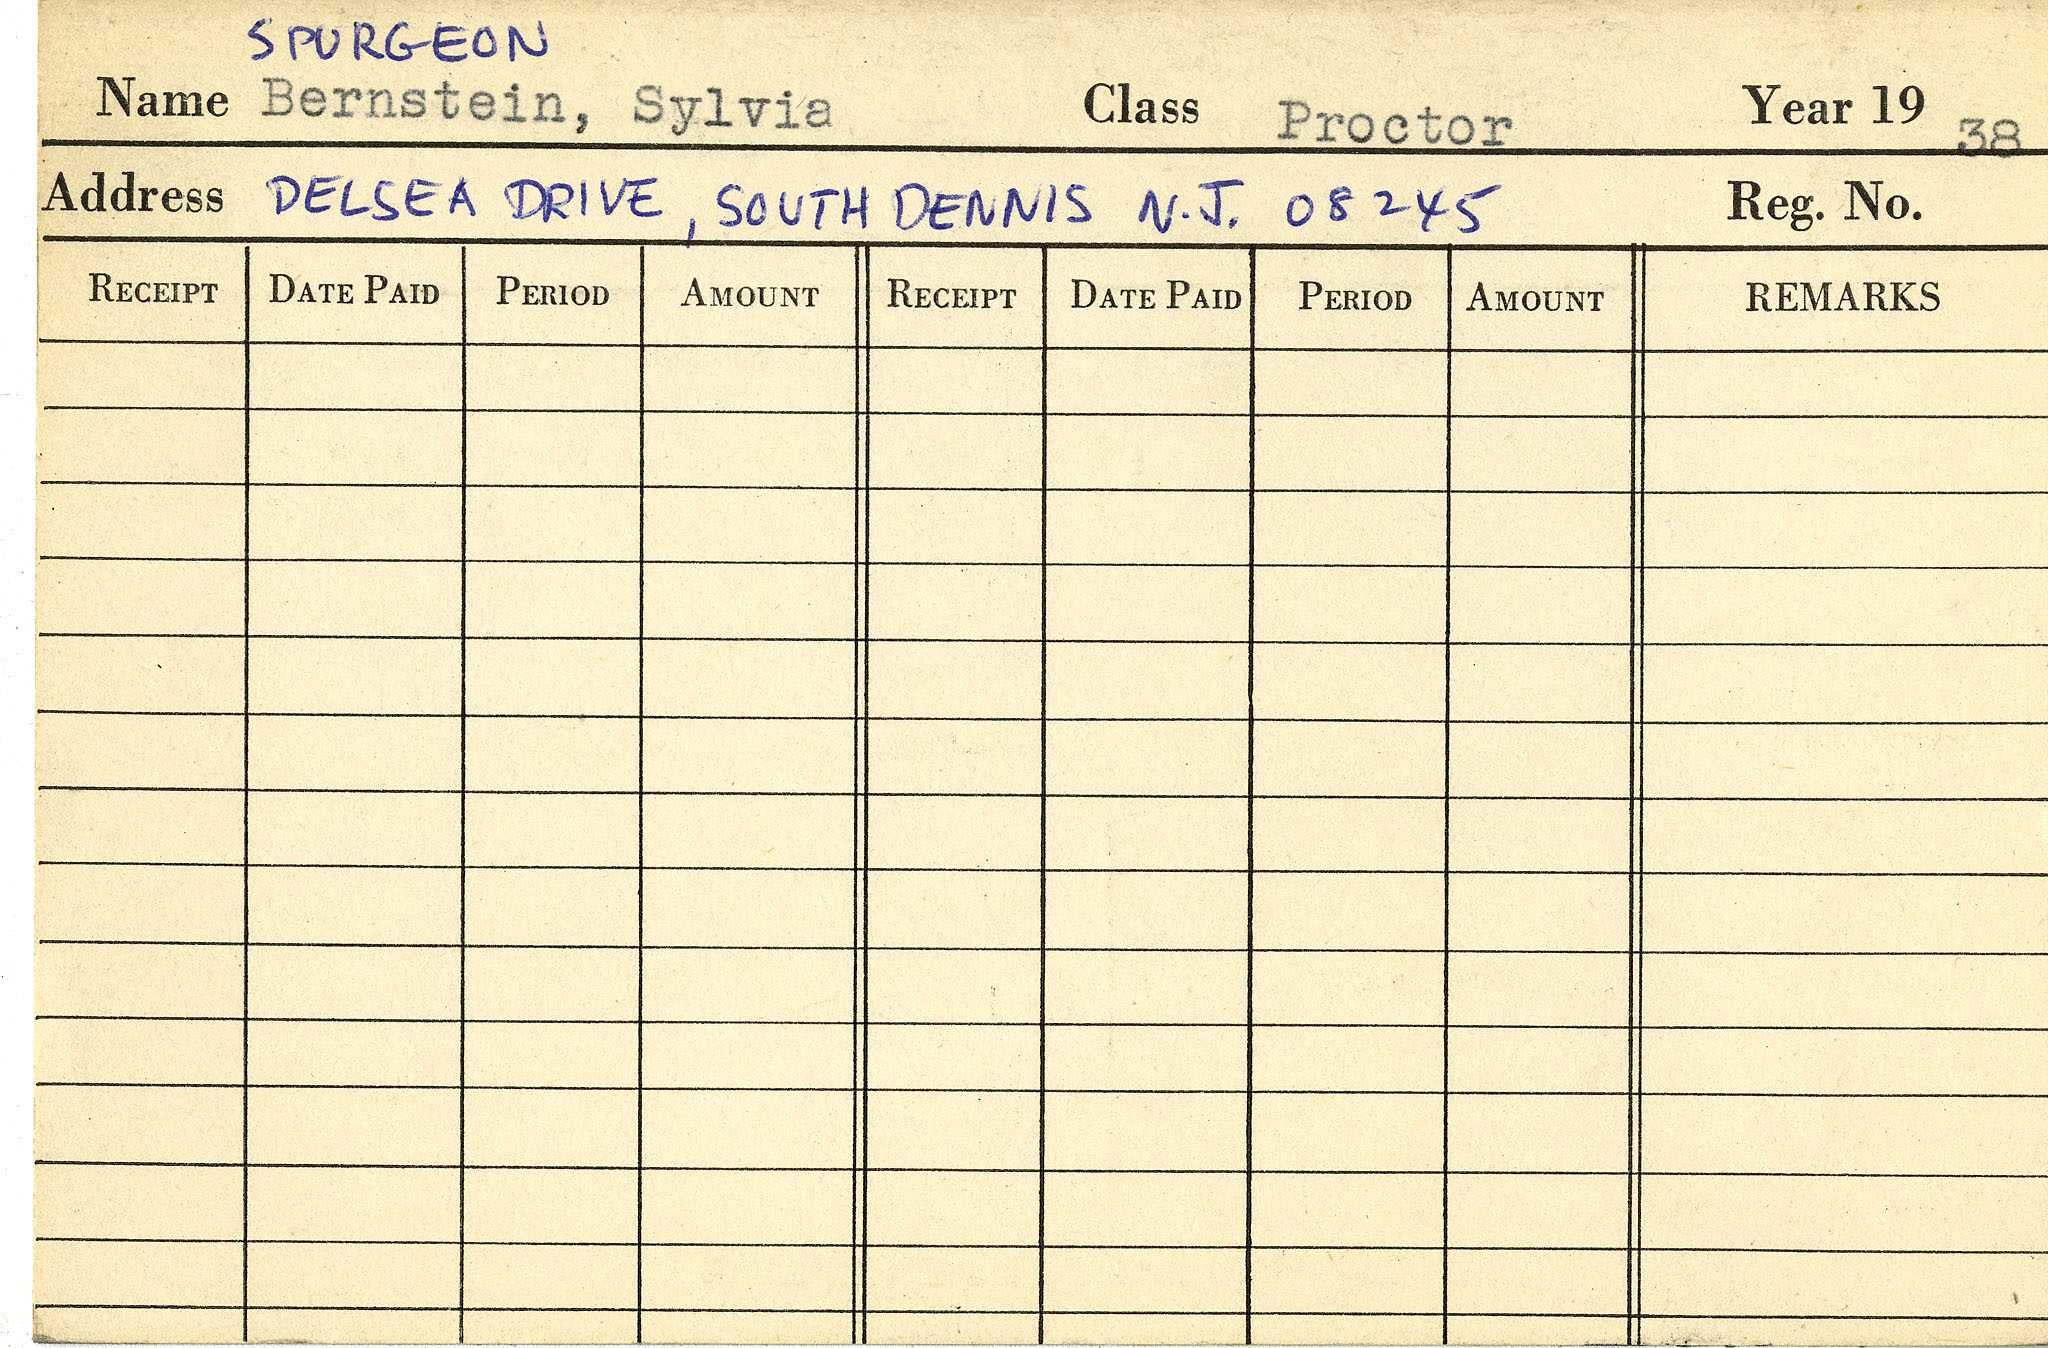 SPURGEON
Name Bernstein, Sylvia Class Proctor Year 19 38
Address DELSEA DRIVE, SOUTH DENNIS N.J. 08245 Reg. No.
RECEIPT DATE PAID PERIOD AMOUNT RECEIPT DATE PAID PERIOD AMOUNT REMARKS